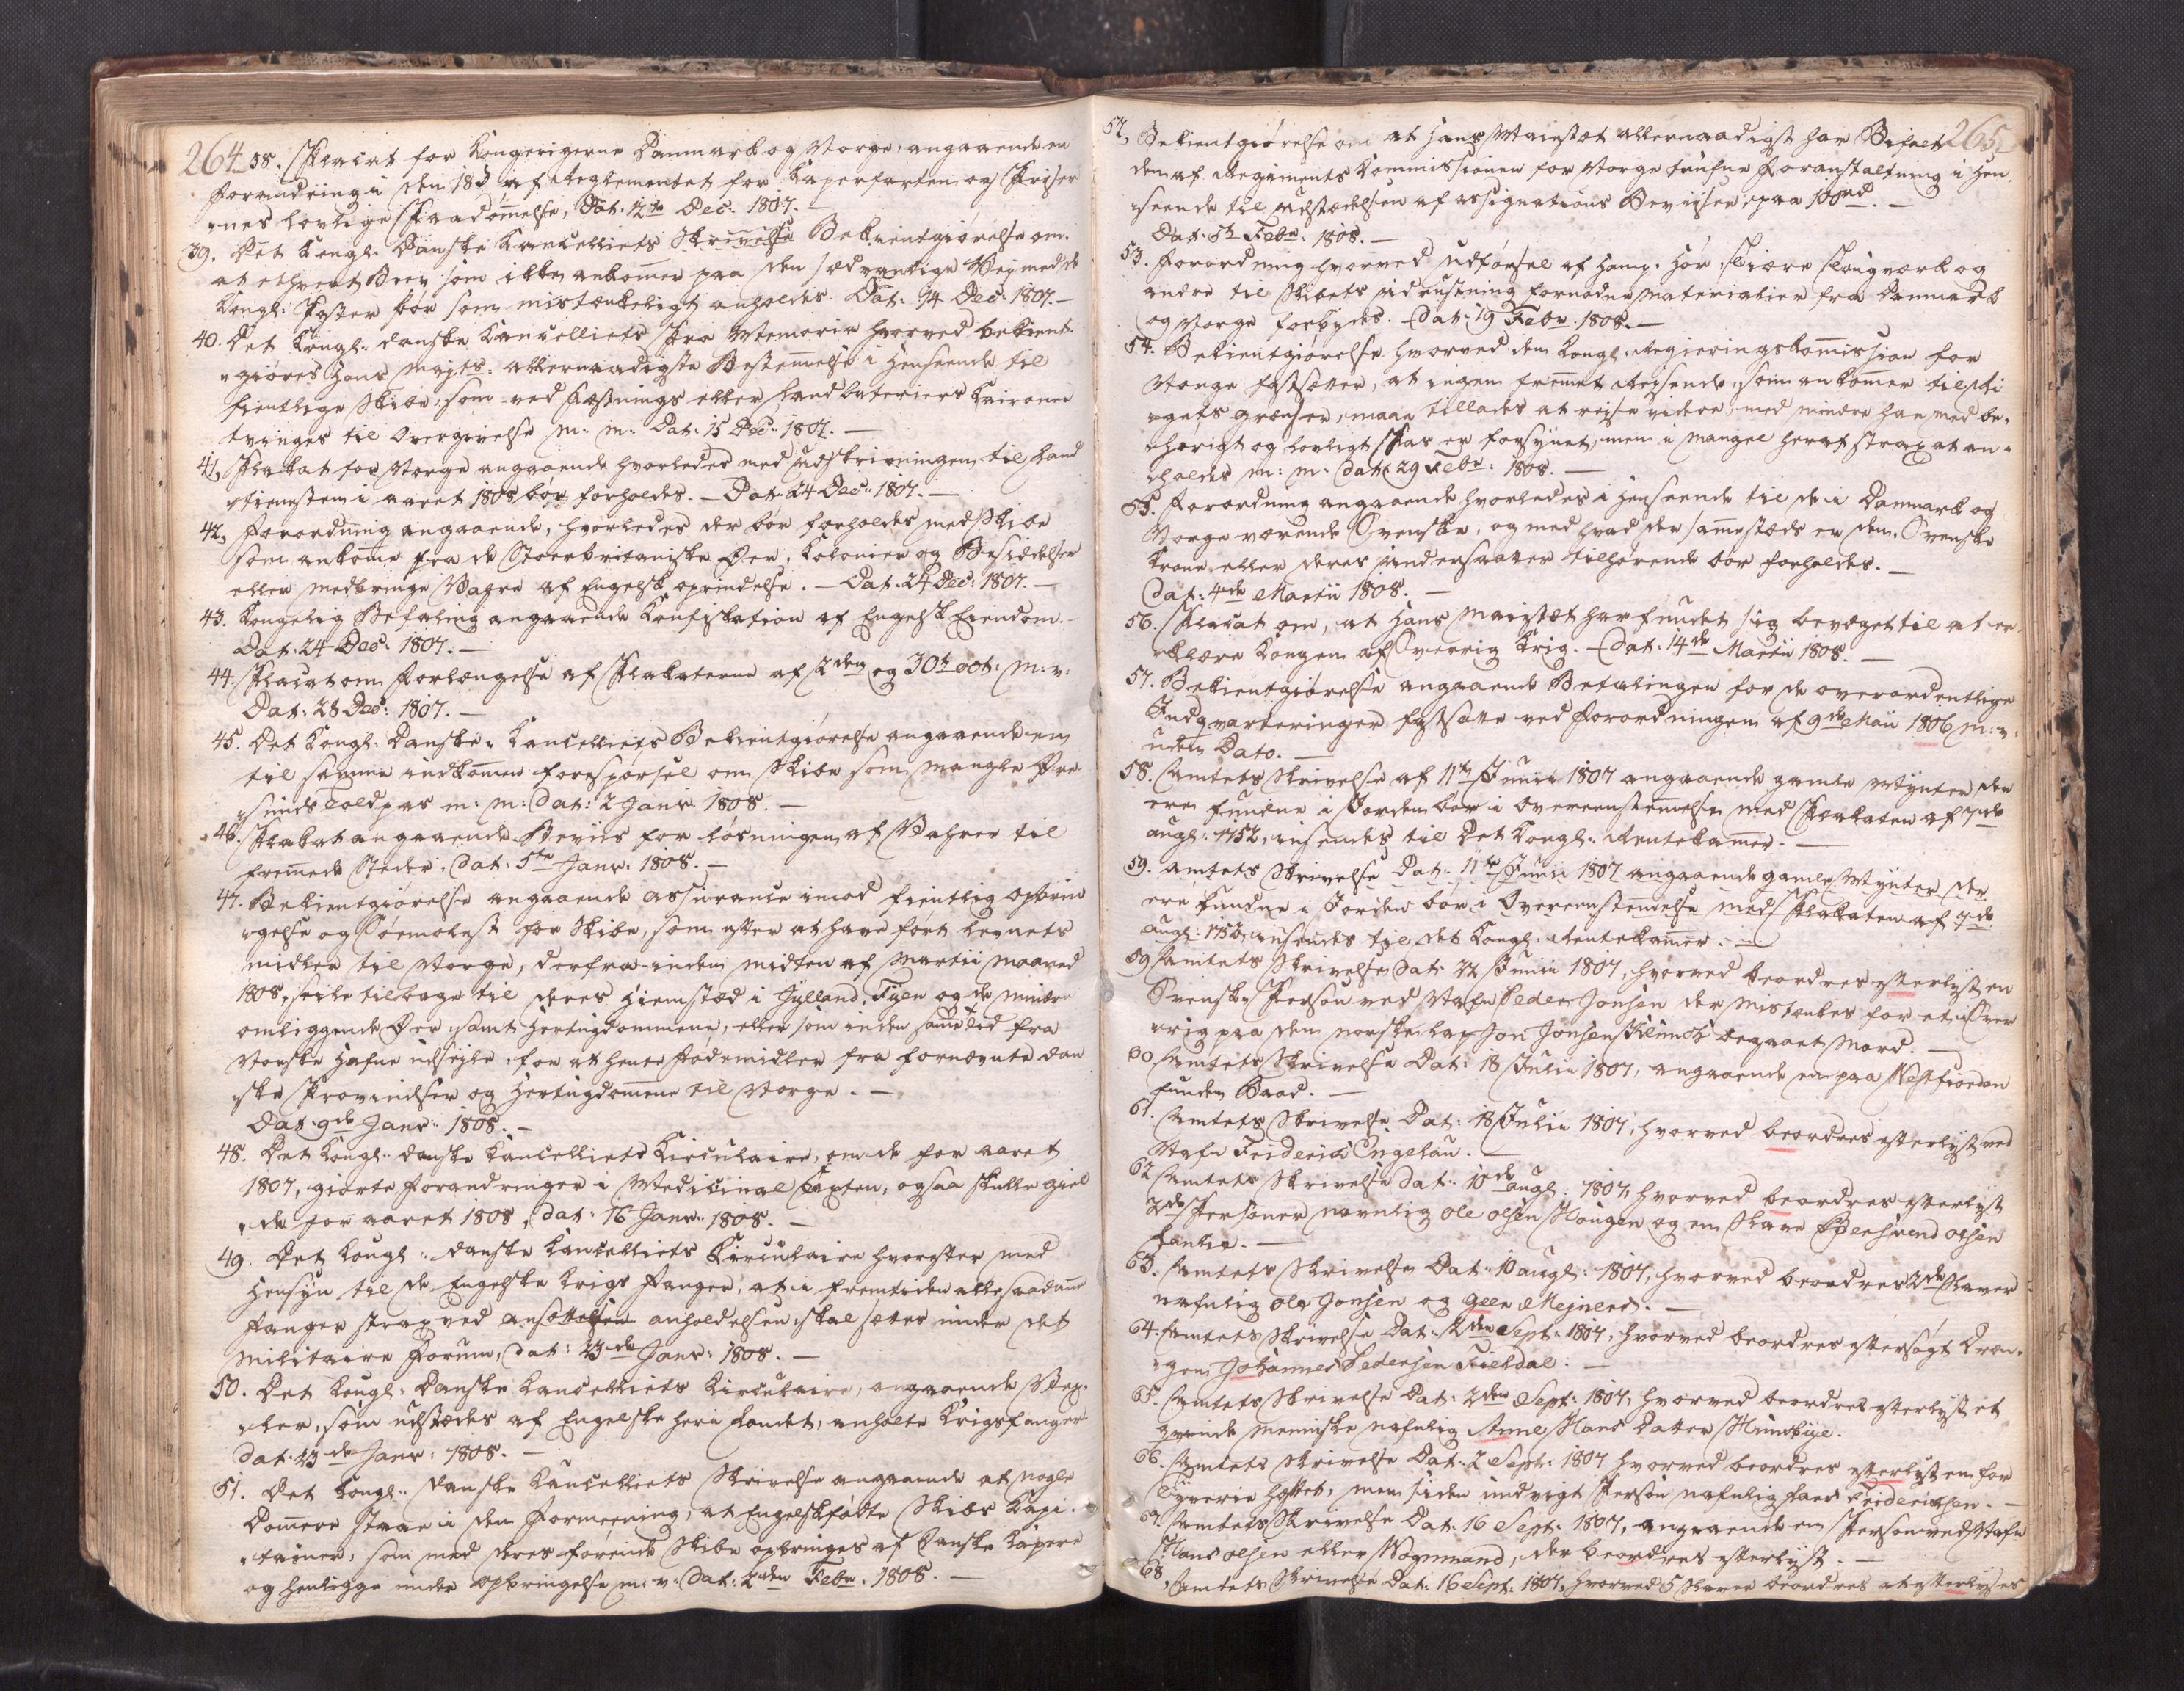 264
38. Placat for Kongerigerne Danmark og Norge, angaaende en
Forandring i den 18 § af Reglementet for Kaperfarten og Priser
"nes lovlige Paadømmelse, Dat. 12te Dec. 1807. —
39. Det Kongl. Danske Kancelliets Skrivelse Bekientgiørelse om
at ethvert Brev som ikke ankommer paa den sædvanlige Vej med de
Kongl: Poster bør som mistænkeligt anholdes. Dat: 14 Dec: 1807. —
40. Det Kongl: danske Kancelliets Pro Memoria hvorved bekient-
"giøres Hans Majts: allernaadigste Bestemmelse i Henseende til
fientlige Skibe, som ved Fæstnings eller Landbateriers Kanoner
tvinges til Overgivelse m: m: Dat: 15 Dec: 1807. —
41, Plakat for Norge angaaende hvorledes med Udskrivningen til Land
"tienesten i aaret 1808 bør forholdes. — Dat. 24 Dec: 1807. —
42, Forordning angaaende, hvorledes der bør forholdes med Skibe
som ankomme fra de Storbritaniske Øer, Kolonier og Besiddelser
eller medbringe Vahre af Engelsk oprindelse. — Dat. 24 Dec: 1807. —
43. Kongelig Befaling angaaende Konfiskation af Engelsk Eiendom.
Dat. 24 Dec: 1807. —
44. Placat om Forlængelse af Plakaterne af 2den og 30te Oct: m: v:
Dat: 28 Dec: 1807. —
45. Det Kongl: Danske Kancelliets Bekientgiørelse angaaende en
til samme indkommen Forespørsel om Skibe som mangle Øre
"sunds Toldpas m: m: Dat: 2 Janv: 1808. —
46. Plakat angaaende Beviis for Løsningen af Vahrer til
fremmede Steder. Dat: 5te Janv: 1808. —
47. Bekientgiørelse angaaende assurance imod fientlig opbrin
"gelse og Søemolest for Skibe, som efter at have ført Levnets
midler til Norge, derfra inden midten af Martii Maaned
1808, seile tilbage til deres Hiemsted i Jylland, Fyen og de mindre
omliggende Øer, samt Hertugdommene, eller som inden samme Tid fra
Norske Hafne udseyle, for at hente Fødemidler fra fornevnte dan
ske Provindser og Hertugdomme til Norge. —
Dat. 9de Janv: 1808. —
48. Det Kongl: danske Kancelliets Circulaire, om de for aaret
1807, giorte Forandringer i Medicinal Taxten, ogsaa skulle giel
"de for aaret 1808, Dat: 16 Janv: 1808. —
49. Det Kongl: danske Kancelliets Circulaire hvorefter med
Hensyn til de Engelske Krigs Fanger, at i Fremtiden alle saadanne
Fanger strax ved ansættelsen anholdelsen skal settes under det
Militaire Forum, Dat: 23de Janv: 1808. —
50. Det Kongl: Danske Kancelliets Circulaire, angaaende Vex-
"ler, som udstædes af Engelske her i Landet, anholte Krigsfanger
Dat. 23de Janv: 1808. —
51. Det Kongl: Danske Kancelliets Skrivelse angaaende at nogle
Dommere staae i den Formeening, at Engelskfødte Skibs Capi-
"tainer, som med deres førende Skibe opbringes af Danske Kapere
og henligge under opbringelse m: v: Dat: 2den Febr: 1808. —
265
52, Bekientgiørelse om at Hans Majestæt allernaadigst har Bifalt
den af Regiments Commissionen for Norge trufne Foranstaltning i Hen-
"seende til Udstædelsen af assignations Beviiser paa 100rd. —
Dat. 5te Febr: 1808. —
53. Forordning hvorved udførsel af Hamp, Hør, Tiære Tougverk og
andre til Skibets Udrustning fornødne Materialier fra Danmark
og Norge forbydes. Dat. 19 Febr: 1808. —
54. Bekientgiørelse hvorved den Kongl: Regieringskommission for
Norge fastsetter, at ingen fremmet Reisende, som ankommer til Ri
"gets Grendser, maae tillades at rejse videre, med mindre han med be-
"hørigt og lovligt Pas er forsynet, men i Mangel heraf strax at an-
holdes m: m: Dat: 29 Febr: 1808. —
55. Forordning angaaende hvorledes i Henseende til de i Danmark og
Norge værende Svenske, og med hvad der sammesteds er den Svenske
Krone eller deres Undersaatter tilhørende bør forholdes. —
Dat: 4de Martii 1808. —
56. Placat om, at Hans Majestæt har fundet sig bevæget til at er-
"klære Kongen af Sverrig Krig. — Dat. 14de Martii 1808. —
57. Bekientgiørelse angaaende Betalingen for de overordentlige
Indqvarteringer fastsatte ved Forordningen af 9de Maii 1806 m: v:
uden Dato. —
58. Amtets Skrivelse af 11te Junii 1807 angaaende gamle Mynter der
ere fundne i Jorden bør i Overeenstemmelse med Plakaten af 7de
augl: 1752, insendes til Det Kongl: Rentekammer. —
59. Amtets Skrivelse Dat: 11te Junii 1807 angaaende gamle Mynter der
ere fundne i Jorden bør i Overeenstemmelse med Plakaten af 7de
augl: 1752, insendes til det Kongl: Rentekammer. —
59 Amtets Skrivelse Dat: 22 Junii 1807, hvorved beordres efterlyst en
Svensk Person ved Nafn Peder Jonsen der mistænkes for et i Sver
"rig paa den norske Lap Jon Jonsen begaaet Mord. —
60 Amtets Skrivelse Dat: 18 Julii 1807, angaaende en paa Westfiorden
funden Baad. —
61. Amtets Skrivelse Dat: 18 Julii 1807, hvorved beordres efterlyst ved
Nafn Friderich Engelau. —
62 Amtets Skrivelse Dat: 10de augl: 1807, hvorved beordres efterlyst
2de Personer navnlig Ole Olsen Hougen og en Slave Ednsvend Olsen
—
63. Amtets Skrivelse Dat: 10 augl: 1807, hvorved beordres 2de Slaver
nafnlig Ole Jonsen og Geen Mejnert. —
64. Amtets Skrivelse Dat: 2den Sept: 1807, hvorved beordres eftersøgt Dren-
"gen Johannes Pedersen Fieldal. —
65. Amtets Skrivelse Dat: 2den Sept: 1807, hvorved beordres efterlyst et
qvinde Menniske nafnlig Anne Hans Datter Hunsbye.
66. Amtets Skrivelse Dat: 2 Sept: 1807 hvorved beordres efterlyst en for
Tyverie heftet, men siden undvigt Person nafnlig Lars Friderichsen. —
67. Amtets Skrivelse Dat: 16 Sept: 1807, angaaende en Person ved Nafn
Hans Olsen eller Wognmand, der beordres efterlyst. —
68, Amtets Skrivelse Dat: 16 Sept: 1807, hvorved 5 Slaver beordres at efterlyses